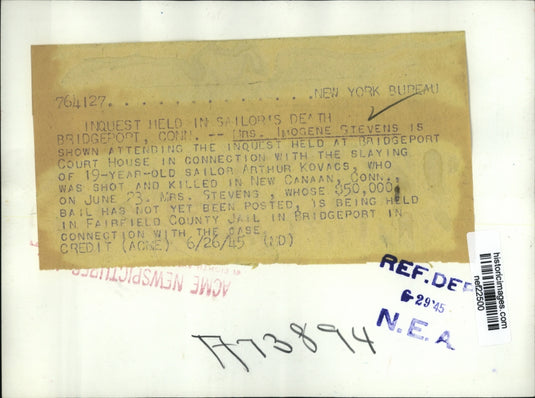 764127. . . . . . . . . . . . . . . . . . .NEW YORK BUREAU
INQUEST HELD IN SAILOR'S DEATH
BRIDGEPORT, CONN. -- MRS. IMOGENE STEVENS IS
SHOWN ATTENDING THE INQUEST HELD AT BRIDGEPORT
COURT HOUSE IN CONNECTION WITH THE SLAYING
OF 19-YEAR-OLD SAILOR ARTHUR KOVACS, WHO
WAS SHOT AND KILLED IN NEW CANAAN, CONN.,
ON JUNE 23. MRS. STEVENS, WHOSE $50,000
BAIL HAS NOT YET BEEN POSTED, IS BEING HELD
IN FAIRFIELD COUNTY JAIL IN BRIDGEPORT IN
CONNECTION WITH THE CASE.
CREDIT (ACME) 6/26/45 (MD)
ACME NEWSPICTURES
REF. DEP
6-29 45
N.E.A.
A73894
historicimages.com
nef22500